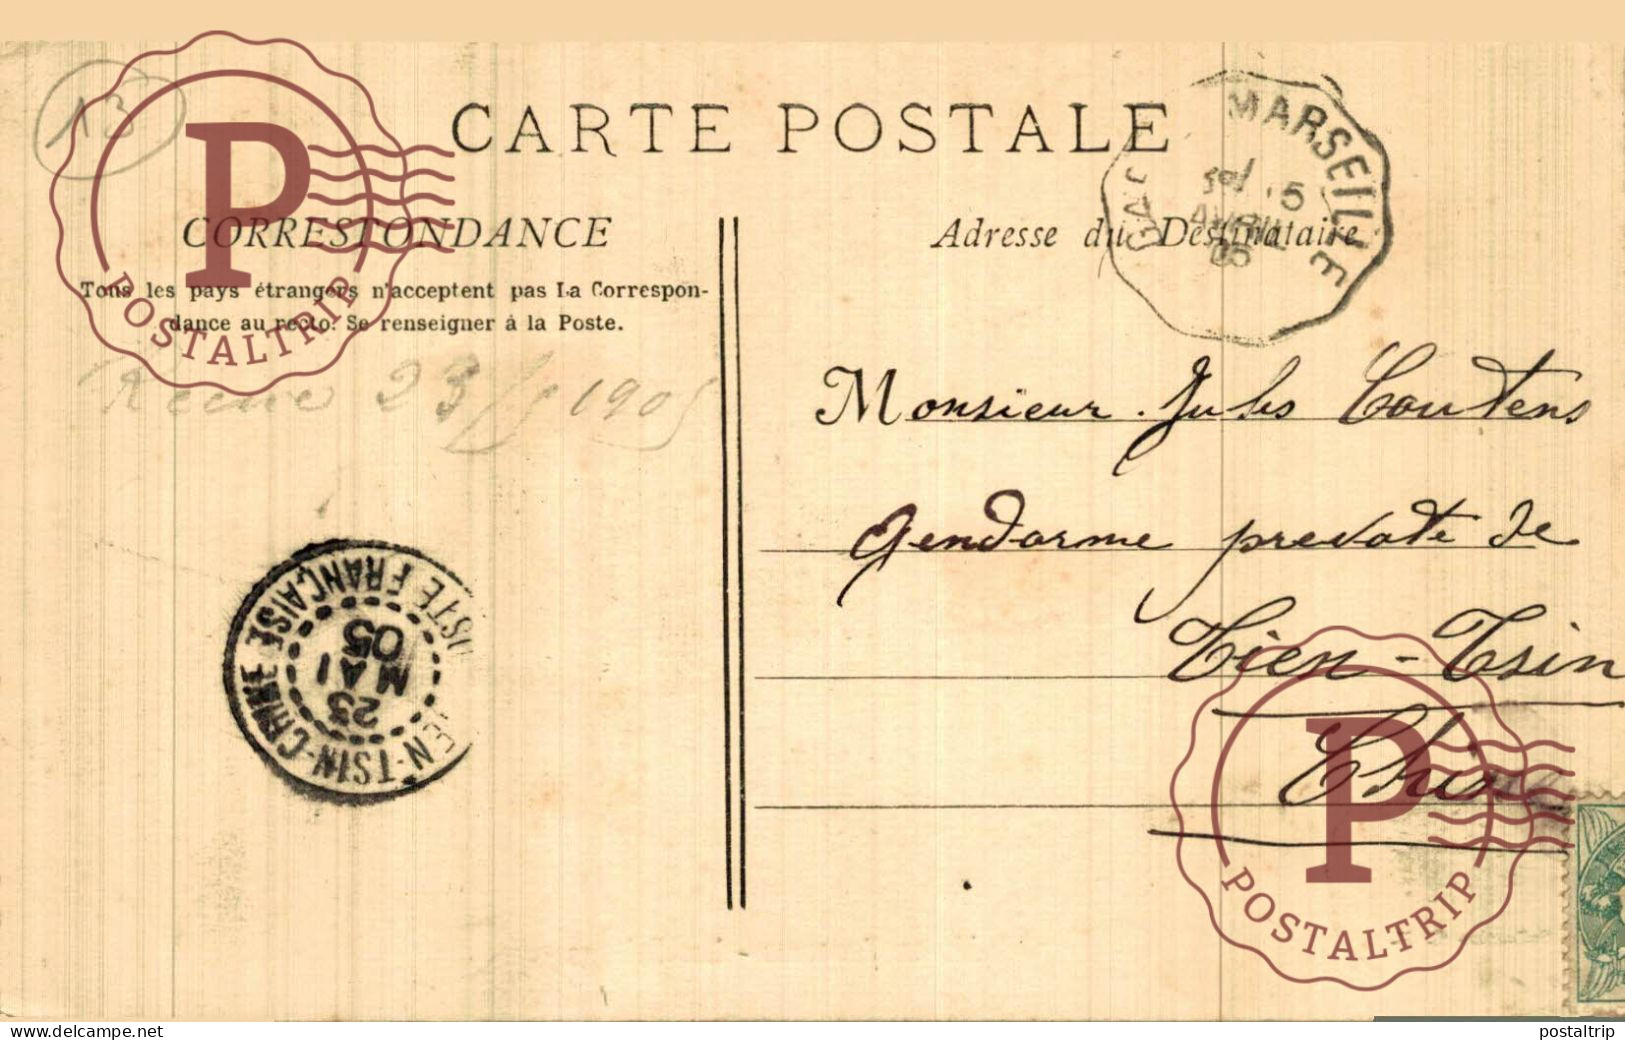 13
CARTE POSTALE
MARSEILLE
5
AVRIL
05
CORRESPONDANCE
Adresse du Destinataire
Tous les pays étrangers n'acceptent pas La Correspon-
dance au recto. Se renseigner à la Poste.
POSTALTRIP
23/5 1905
Monsieur Jules Coutens
Gendarme prevoté de
Tien-Tsin
Chine
POSTE FRANÇAISE
23
MAI
05
TIEN-TSIN-CHINE
POSTALTRIP
www.delcampe.net
postaltrip